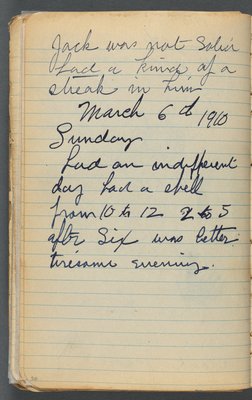 Jack was not Solid
had a kind of a
streak in him
March 6th 1910
Sunday
had an indifferent
day had a spell
from 10 to 12 2 to 5
after Six was better
tiresome evening.